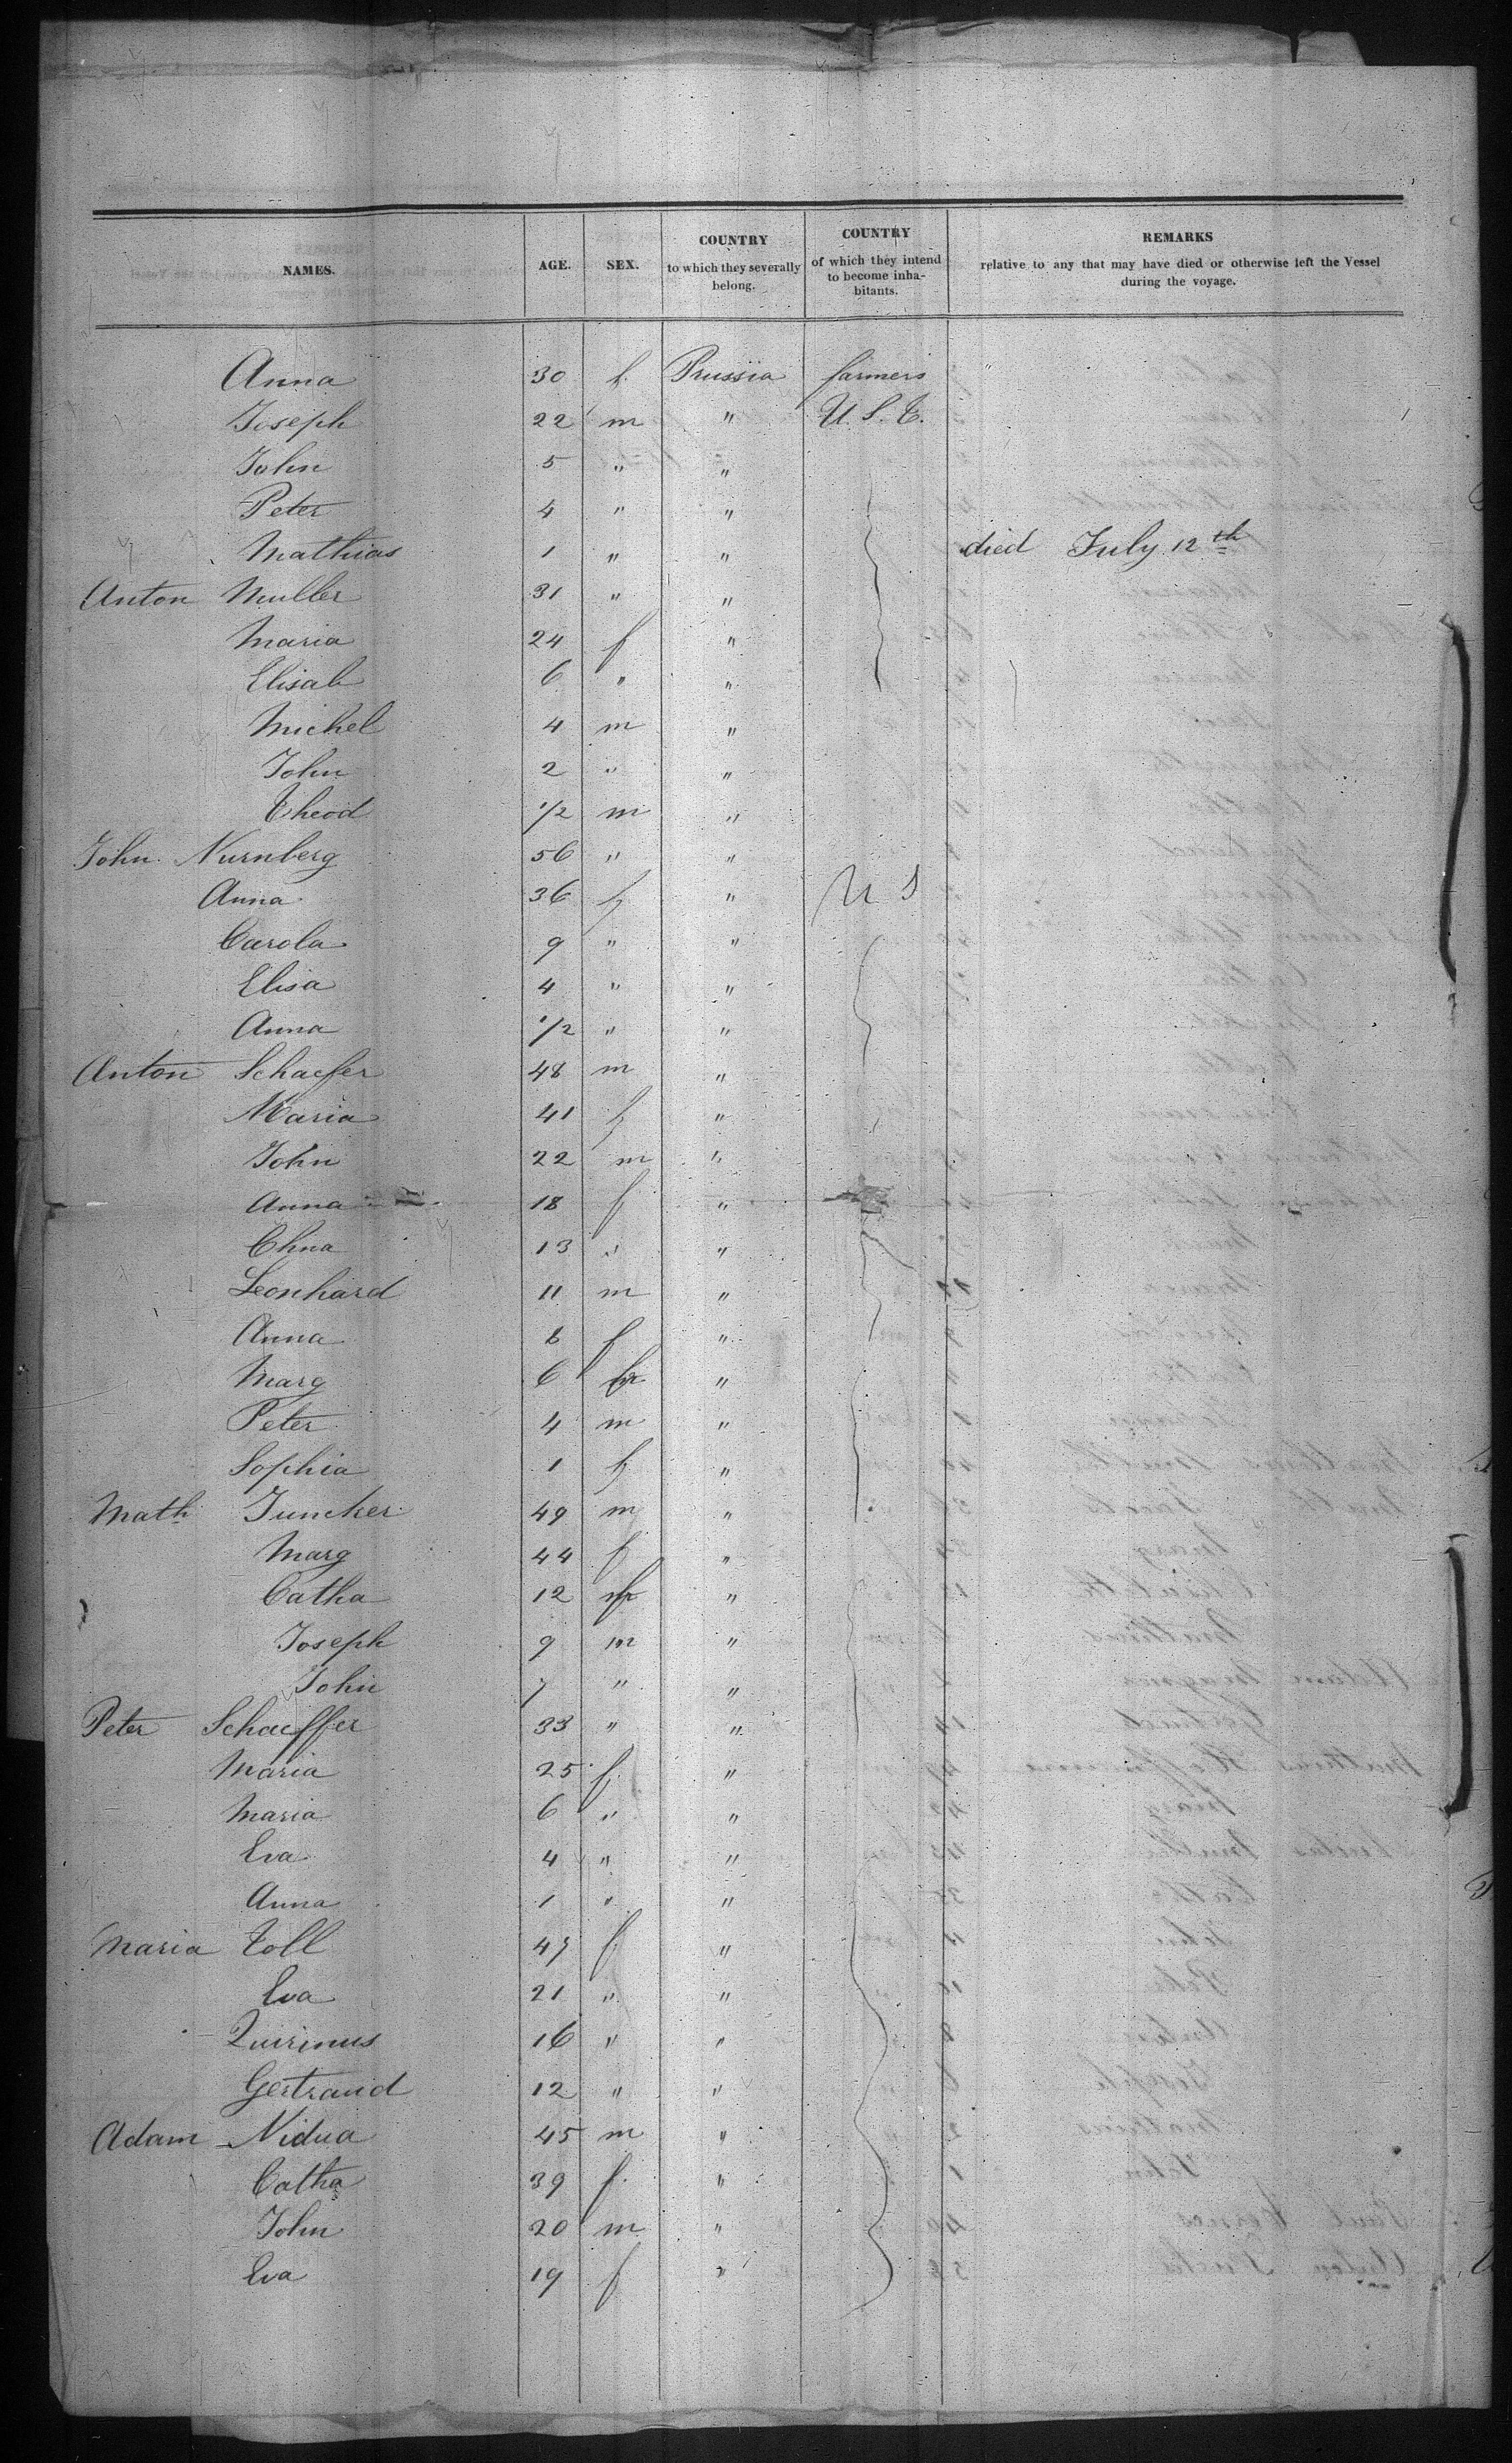 NAMES. AGE. SEX. COUNTRY to which they severally belong. COUNTRY of which they intend to become inhabitants. REMARKS relative to any that may have died or otherwise left the Vessel during the voyage.
Anna 30 f. Prussia farmers "
Joseph 22 m " U. S. T.
John 5 " "
Peter 4 " "
Mathias 1 " " died July 12th
Anton Muller 31 " "
Maria 24 f "
Elisab 6 " "
Michel 4 m "
John 2 " "
Theod 1/2 m "
John Nurnberg 56 " "
Anna 36 f " U S
Carola 9 " "
Elisa 4 " "
Anna 1/2 " "
Anton Schaefer 48 m "
Maria 41 f "
John 22 m "
Anna 18 f "
Chna 13 " "
Leonhard 11 m "
Anna 8 f "
Marg 6 f "
Peter 4 m "
Sophia 1 f "
Math Juncker 49 m "
Marg 44 f "
Catha 12 f "
Joseph 9 m "
John 7 " "
Peter Schaeffer 33 " "
Maria 25 f "
Maria 6 " "
Eva 4 " "
Anna 1 " "
Maria Toll 47 f "
Eva 21 " "
Quirinus 16 " "
Gertraud 12 " "
Adam Nidua 45 m "
Catha 39 f. "
John 20 m "
Eva 19 f "